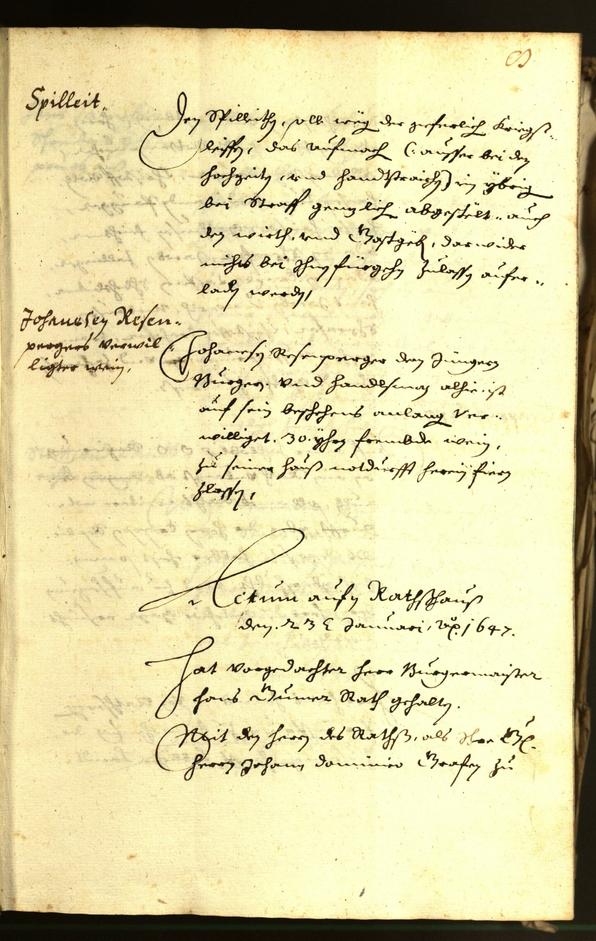 Spilleit.
Den Spilleithn, soll wög der geferlich Kriegs-
leiffn, das aufmach (: ausser bei den
hochzeitn, und handtstraichn) in ybrig
bei Straff genzlich abgestelt. auch
den wirth. und Gastgebn, darwider
nichts bei Ihn fürgehn zulassn aufer-
ladn werdn,
Johanesen Resen-
pergers verwil
ligter wein,
Johanesn Resenperger dem Jüngern
Burger. und handlsman alhie. ist
auf sein beschehens anlangn ver-
williget. 30 yhrn frembde wein,
zu seiner hauß notdurfft hereinfiern
zlassn,
Actum aufn Rathshauß
den. 23 Januari, 1647.
Hat vorgedachter herr Burgermaister
hans Rath gehaltn.
Mit den herrn des Raths, als Ihre
herrn Johann dominico Grafen zu